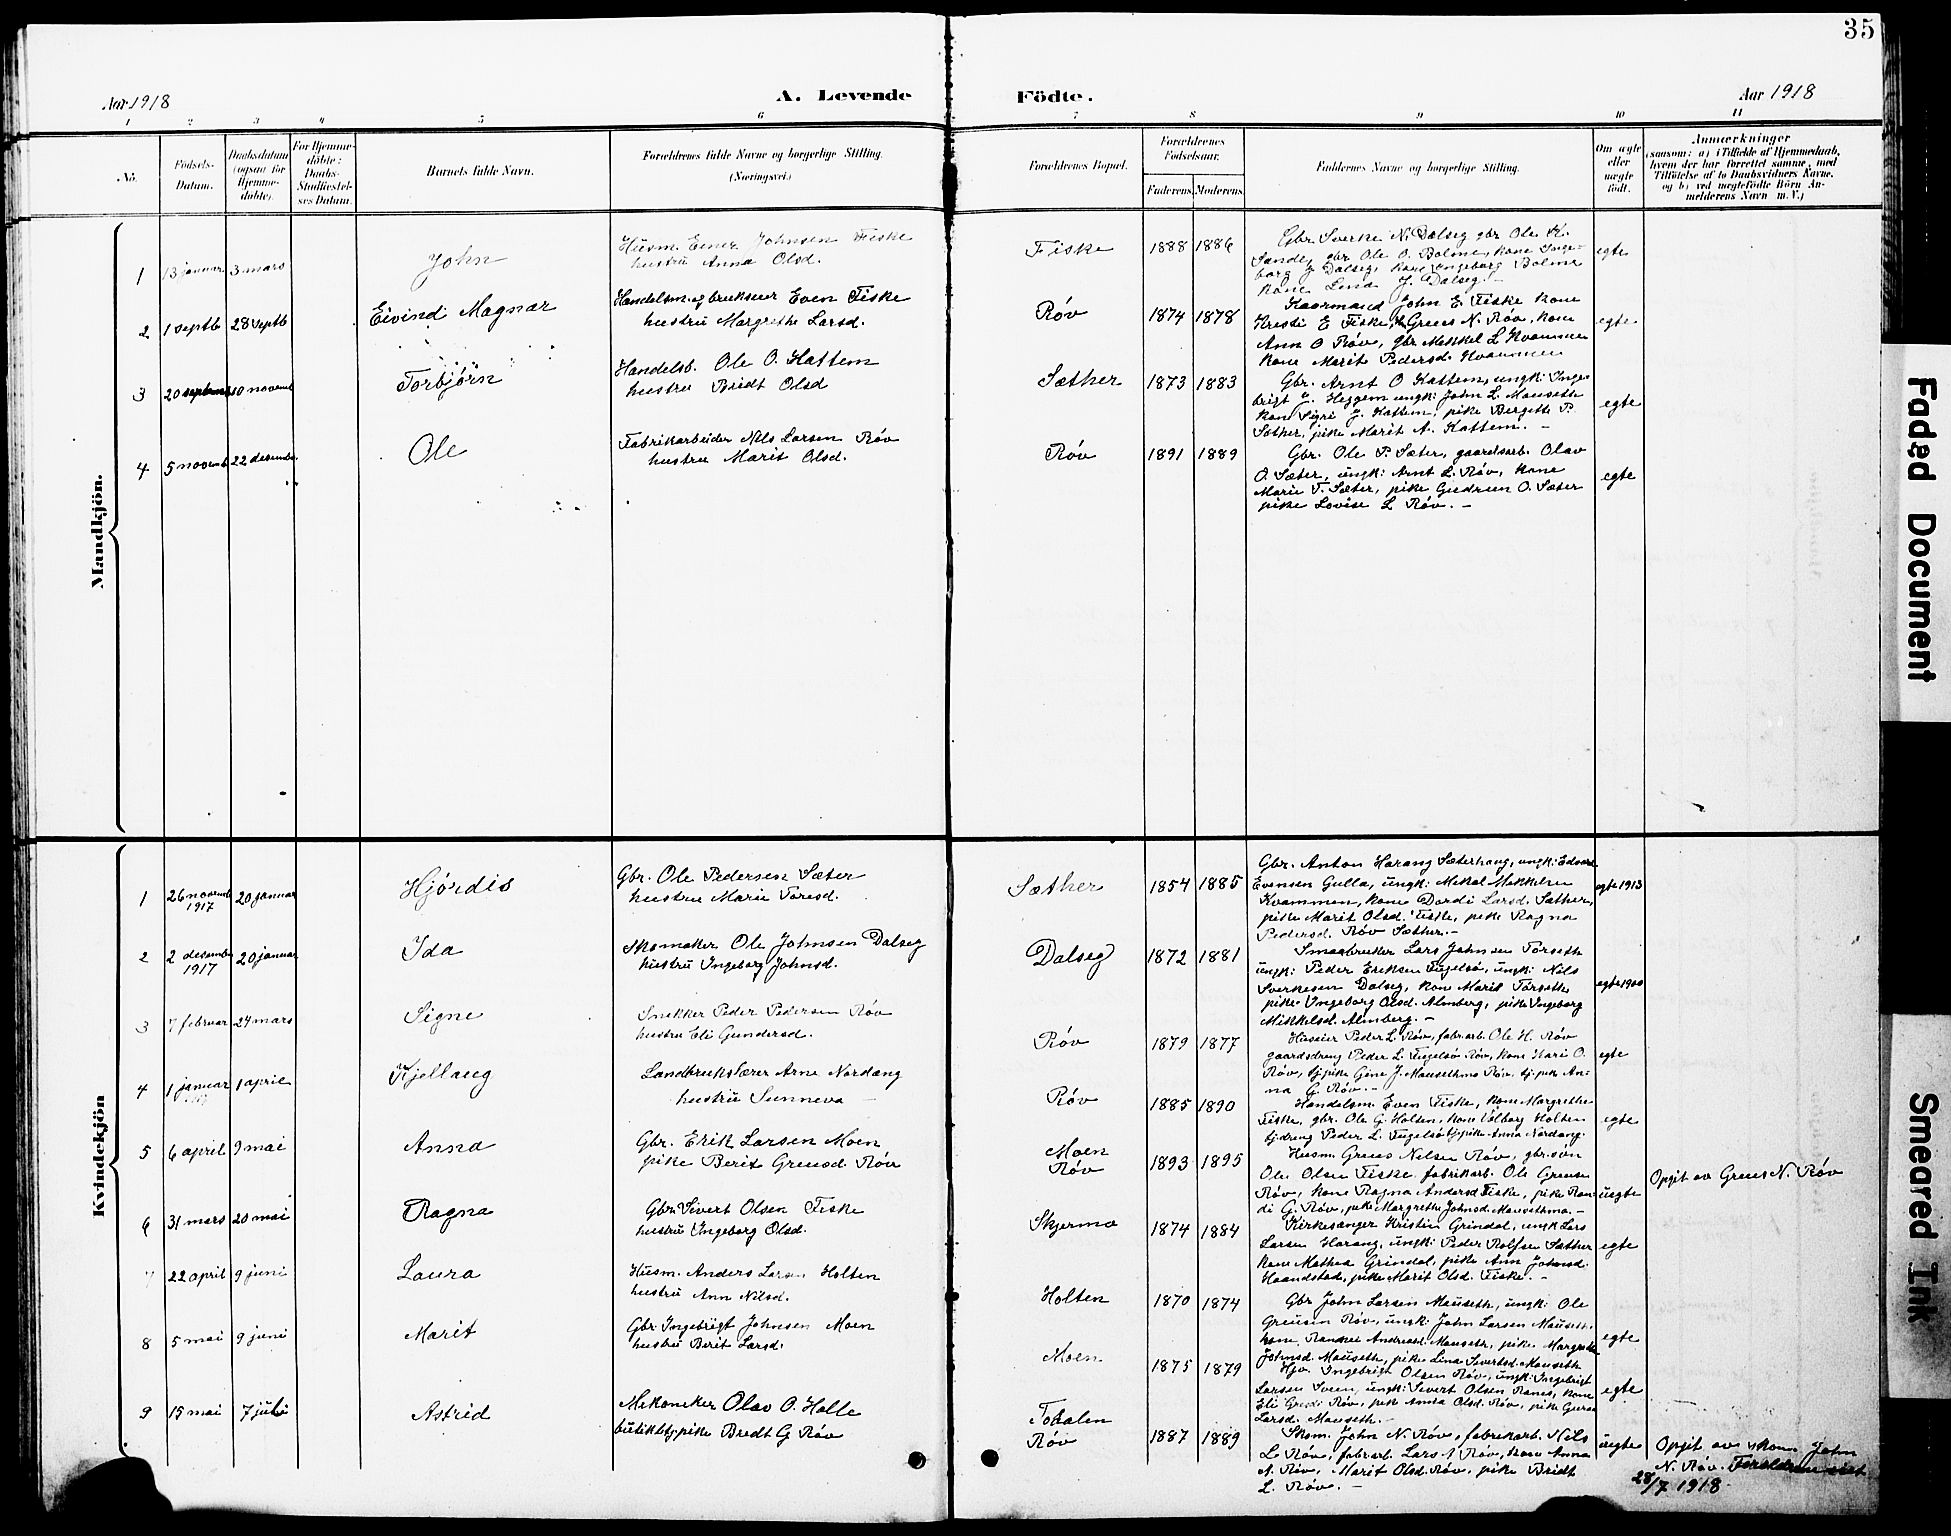 35
Aar 1918
A. Levende
Födte.
Aar 1918
1 2 3 4 5 6 7 8 9 10 11
No.
Födsels-
Datum.
Daabsdatum
(ogsaa for
Hjemme-
döbte).
For Hjemme-
döbte:
Daabs-
Stadfæstel-
ses Datum.
Barnets fulde Navn.
Forældrenes fulde Navne og borgerlige Stilling.
(Næringsvei.)
Forældrenes Bopæl.
Forældrenes
Födselsaar.
Faderens. Moderens.
Faddernes Navne og borgerlige Stilling.
Om ægte
eller
uægte
födt.
Anmærkninger
(saasom: a) i Tilfælde af Hjemmedaab,
hvem der har forrettet samme, med
Tilföielse af to Daabsvidners Navne,
og b) ved uægtefödte Börn An-
melderens Navn m.V.)
Mandkjön.
1 13 januar 3 mars John
Husm. Einar Johnsen Fiske
hustru Anna Olsd.
Fiske 1888 1886
Gbr. Sverke N. Dalseg gbr Ole K.
Sande, gbr Ole O. Bolme, kone Inge-
borg J. Dalseg, kone Ingeborg Bolme
kone Lina J. Dalseg. –
egte
2 1 septb 28 septb Eivind Magnar
Handelsm. og brukseier Even Fiske
hustru Margrethe Larsd.
Røv 1874 1878
Kaarmand John E. Fiske kone
Kristi E Fiske, Greus N. Røv, kone
Ann O Røv, gbr. Mekkel L Kvammen
kone Marit Pedersd. Kvammen
egte
3 20 septemb 10 novemb Torbjørn
Handelsb. Ole O. Kattem
hustru Bridt Olsd
Sæther 1873 1883
Gbr. Arnt O Kattem, ungk: Inge
brigt J. Heggem ungk: John L. Mauseth
kone Sigri J. Kattem, pike Bergitte P.
Sæther, pike Marit A. Kattem. –
egte
4 5 novemb 22 desembe. Ole
Fabrikarbeider Nils Larsen Røv
hustru Marit Olsd.
Røv 1891 1889
Gbr. Ole P. Sæter, gaardsarb. Olav
O. Sæter, ungk: Arnt L. Røv, kone
Marie T. Sæter, pike Gudrun O. Sæter
pike Lovise L Røv. –
egte
Kvindekjön
1 26 novemb
1917 20 januar Hjørdis
Gbr. Ole Pedersen Sæter
hustru Marie Toresd.
Sæther 1854 1885
Gbr. Anton Harang Sæterhaug, ungk: Edvard
Evensen Gulla, ungk: Mekal Mekkelsen
Kvammen, kone Dordi Larsd. Sæther,
pike Marit Olsd. Fiske, pike Ragna
Pedersd. Røv Sæther. –
egte 1913
2 2 desembe
1917 20 januar Ida
Skomaker Ole Johnsen Dalseg
hustru Ingeborg Johnsd.
Dalseg 1872 1881
Smaabruker Lars Johnsen Torseth
ungk: Peder Eriksen Fugelsø, ungk: Nils
Sverkesen Dalseg, kone Marit Torseth
pike Ingeborg Olsd. Almberg, pike Ingeborg
Mikkelsd. Almberg. –
egte 1900
3 7 februar 24 mars Signe
Snekker Peder Pedersen Røv
hustru Eli Gundersd.
Røv 1879 1877
Huseier Peder L. Røv, fabr.arb. Ole H. Røv
gaardsdreng Peder L. Fugelsø Røv, kone Mari O.
Røv, tj. pike Gine J. Mausethmo Røv, tj. pike An-
na G. Røv. –
egte
4 1 januar 1 april Kjellaug
Landbrukslærer Arne Nordang
hustru Sunneva –
Røv 1885 1890
Handelsm. Even Fiske, kone Margrethe
Fiske, gbr. Ole G. Holten, kone Valborg Holten
tj.dreng Peder L. Fugelsø tj.pike Anna Nordang.
egte
5 6 april 9 mai Anna
Gbr. Erik Larsen Moen
pike Berit Greusd. Røv
Moen
Røv 1893 1895
Husm. Greus Nilsen Røv, gbr.søn
Ole Olsen Fiske, fabrikarb. Ole Greusen
Røv, kone Ragna Andersd Fiske, pike Ran-
di G. Røv, pike Margrethe Johnsd. Mausethmo. –
uegte
Opgit av Greus N. Røv
6 31 mars 20 mai Ragna
Gbr. Sivert Olsen Fiske
hustru Ingeborg Olsd.
Skjermo 1874 1884
Kirkesanger Kristen Grindal, ungk Lars
Larsen Harang, ungk: Peder Rolfsen Sæther
kone Mathea Grindal, pike Ann Johnsd.
Haandstad, pike Marit Olsd. Fiske. –
egte
7 22 april 9 juni Laura
Husm. Anders Larsen Holten
hustru Ann Nilsd.
Holten 1870 1874
Gbr John Larsen Mauseth, ungk: Ole
Greusen Røv, ungk: John Larsen Mauseth,
kone Andreasd. Mauseth, pike Margrethe
Johnsd. Mauseth, pike Lina Sivertsd. Mauseth
egte
8 5 mai 9 juni Marit
Gbr: Ingebrigt Johnsen Moen
hustru Berit Larsd.
Moen 1875 1879
Ingebrigt Olsen Røv, ungk: Ingebrigt
Larsen Sveen, ungk: Sivert Olsen Ranes, kone
Eli Røv, pike Anna Olsd. Røv, pike Guru
Larsd. Mauseth. –
egte
9 15 mai 7 juli Astrid
Mekaniker Olav O. Halle
butiktj. pike Bredt G Røv
Todalen
Røv 1887 1889
Skom. John N. Røv, fabrikarb. Nils
L Røv, fabr.arb. Lars Røv, kone Anna
N. Røv, Marit Olsd. Røv, pike Bridt
L. Røv. –
uegte
Opgit av skom. John
N. Røv. viet
28/7 1918
Faded Document
Smeared Ink